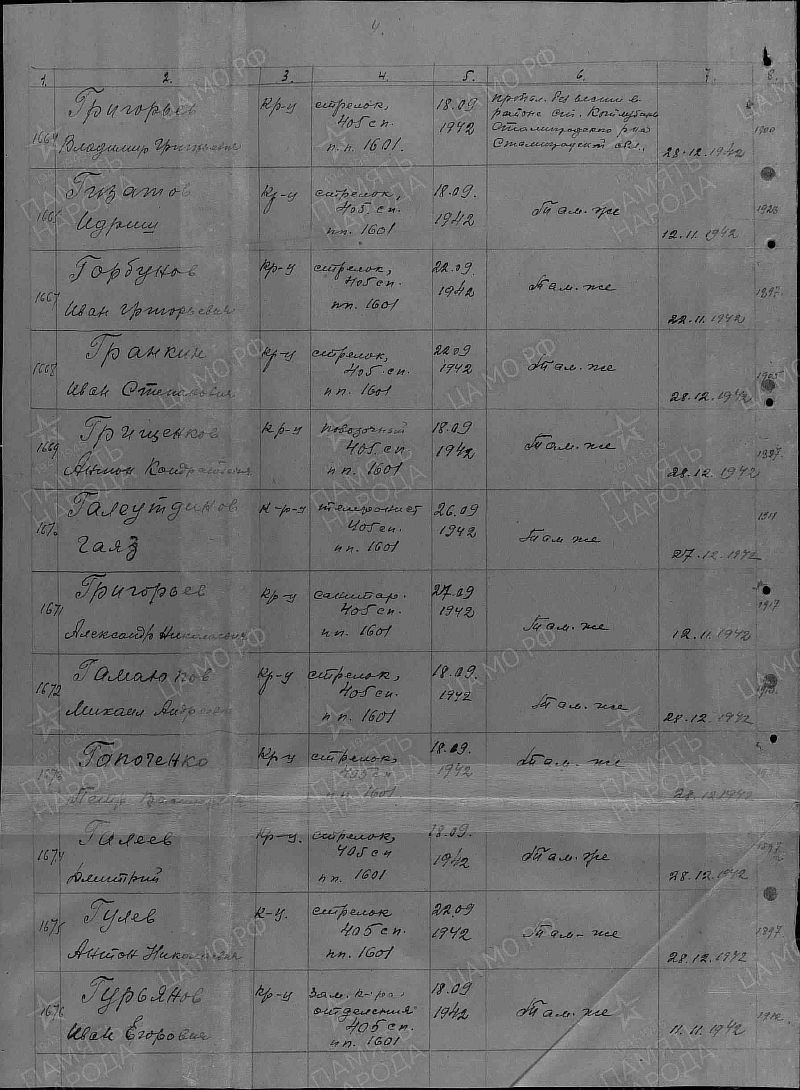 4.
1. 2. 3. 4. 5. 6. 7. 8.
1664 Григорьев
Владимир Григорьевич кр-ц стрелок,
405 сп.
п.п. 1601. 18.09
1942 пропал без вести в
районе ст.
Сталинградского р-на
Сталинградск. обл., 28.12.1942 1900
Гизатов
Идриш кр-ц стрелок,
405. сп.
пп. 1601 18.09.
1942 Там-же 12.11.1942
1667 Горбунов
Иван Григорьевич кр-ц стрелок,
405 сп.
пп. 1601 22.09.
1942 Там-же 22.11.1942 1897.
1668 Гранкин
Иван Степанович кр-ц стрелок,
405. сп.
пп. 1601 22.09
1942 Там-же 28.12.1942 1905
1669 Грищенков
Антон Кондратьевич кр-ц повозочный
405. сп
пп. 1601 18.09
1942 Там-же 28.12.1942
1670 Галеутдинов
Гаяз к-р-ц телефонист
405 сп.
пп. 1601 26.09
1942 Там же 27.12.1942 1911
1671 Григорьев
Александр Николаевич кр-ц санитар.
405 сп.
пп. 1601 27.09
1942 Там-же 12.11.1942 1917
1672 Гамаюнов
Михаил Андреевич кр-ц стрелок,
405 сп.
пп. 1601 18.09.
1942 Там-же 28.12.1942
1673 Гапоченко
кр-ц стрелок,
405 сп
пп. 1601 18.09.
1942 Там-же 28.12.1942
1674 Гилеев
Дмитрий кр-ц. стрелок,
405 сп
пп. 1601 18.09.
1942 Там-же 28.12.1942 1897
1675 Гулев
Антон Николаевич к-ц. стрелок
405 сп.
пп. 1601 22.09
1942 Там-же 28.12.1942 1897.
1676 Гурьянов
Иван Егорович кр-ц зам. к-ра
отделения
405 сп.
пп. 1601 18.09
1942 Там-же 11.11.1942
ЦАМО.РФ
ПАМЯТЬ
НАРОДА